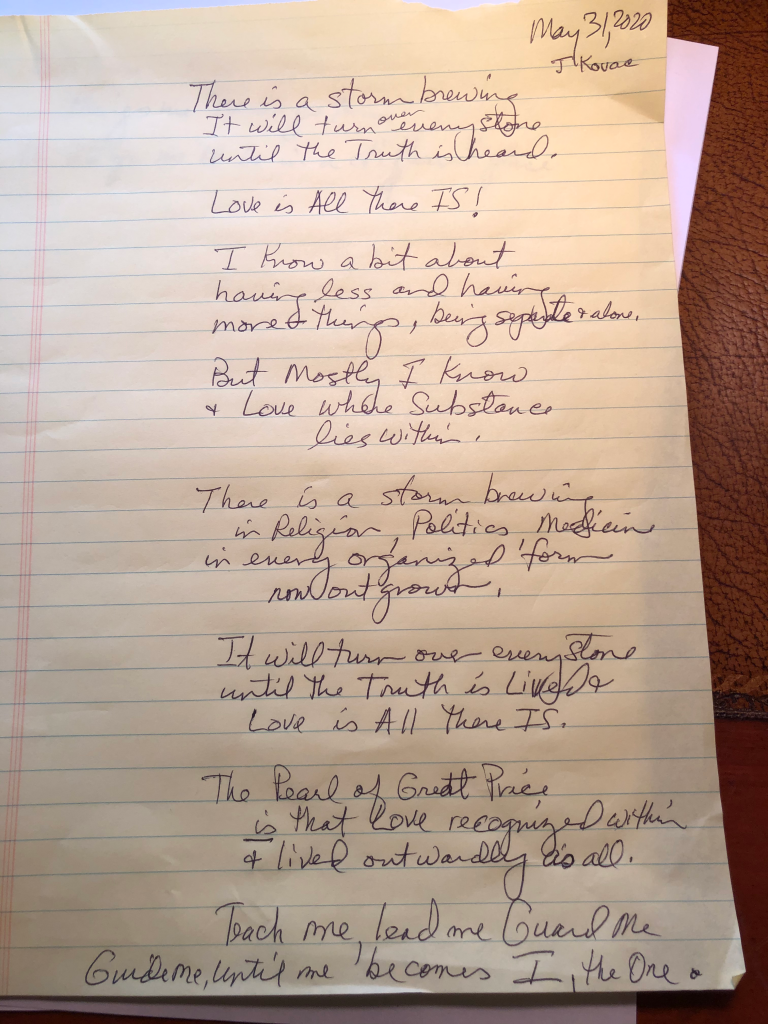 May 31, 2020
J Kovac
There is a storm brewing
It will turn over every stone
until the Truth is heard.
Love is All There IS!
I Know a bit about
having less and having
more & things, being separate & alone.
But Mostly I Know
& Love where Substance
lies within.
There is a storm brewing
in Religion, Politics, Medicin
in every organized form
now outgrown.
It will turn over every Stone
until the Truth is Lived &
Love is All There IS.
The Pearl of Great Price
is that Love recognized within
& lived outwardly as all.
Teach me, lead me Guard Me
Guide me, until me becomes I, the One.